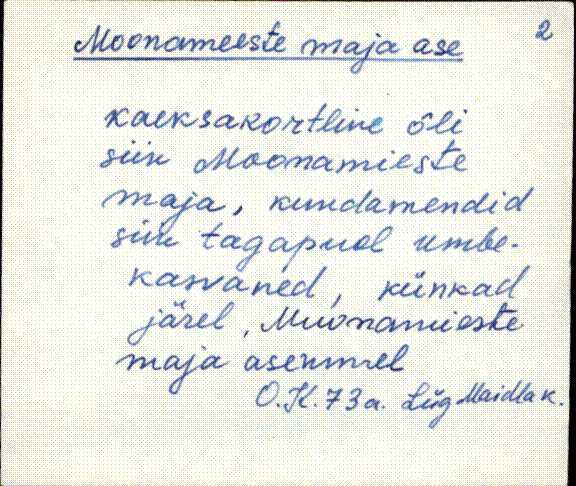 2
Moonameeste maja ase
kaeksakortline õli
siin Moonamieste
maja, kundamendid
siin tagapuol umbe-
kasvaned, künkad
järel, Muonamieste
maja asemmel
O.K. 73a. Lüg Maidla k.